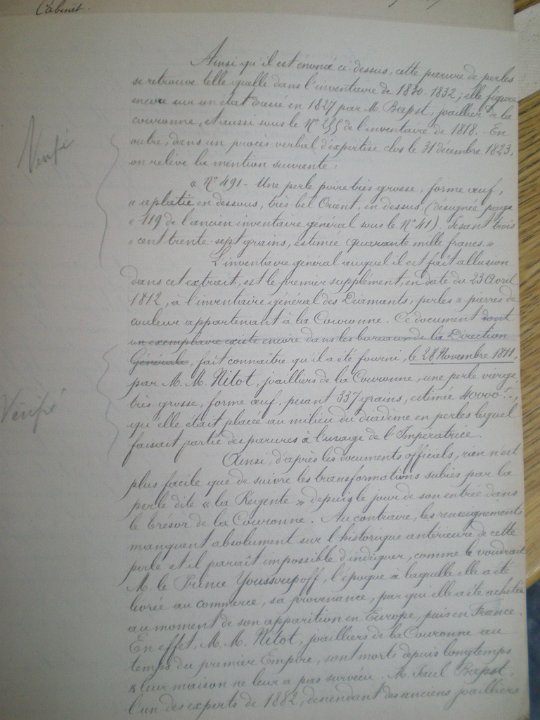 Cabinet.
Ainsi qu'il est énoncé ci-dessus, cette parure de perles
se retrouve telle quelle dans l'inventaire de 1830-1832; elle figure
encore sur un état dressé en 1827 par M. Bapst, joaillier de la
couronne, et aussi sous le N° 355 de l'inventaire de 1818. En
outre, dans un procès verbal d'expertise clos le 31 décembre 1823,
on relève la mention suivante:
Vérifié
« N° 491 - Une perle poire très grosse, forme œuf,
« aplatie en dessous, très bel Orient, en dessus (désignée page
« 119 de l'ancien inventaire général sous le N° 41) Pesant trois
« cent trente sept grains, estimée quarante mille francs. »
L'inventaire général auquel il est fait allusion
dans cet extrait, est le premier supplément, en date du 23 Avril
1812, à l'inventaire général des Diamants, perles & pierres de
couleur appartenant à la Couronne. Ce document dont
un exemplaire existe encore dans les bureaux de la Direction
Générale, fait connaître qu'il a été fourni, le 28 Novembre 1811,
par M.M. Nitot, joailliers de la Couronne, une perle vierge
très grosse, forme œuf, pesant 337 grains, estimée 40000 f.,
Vérifié
qu'elle était placée au milieu du diadème en perles lequel
faisait partie des parures à l'usage de l'Impératrice.
Ainsi, d'après les documents officiels, rien n'est
plus facile que de suivre les transformations subies par la
perle dite « la Régente » depuis le jour de son entrée dans
le trésor de la Couronne. Au contraire, les renseignements
manquent absolument sur l'historique antérieure de cette
perle et il paraît impossible d'indiquer, comme le voudrait
M. le Prince Youssoupoff, l'époque à laquelle elle a été
livrée au commerce, sa provenance, par qui elle a été achetée
au moment de son apparition en Europe, puis en France.
En effet, M.M. Nitot, joailliers de la Couronne au
temps du premier Empire, sont morts depuis longtemps
& leur maison ne leur a pas survécu. M. Paul Bapst,
l'un des experts de 1882, descendant des anciens joailliers